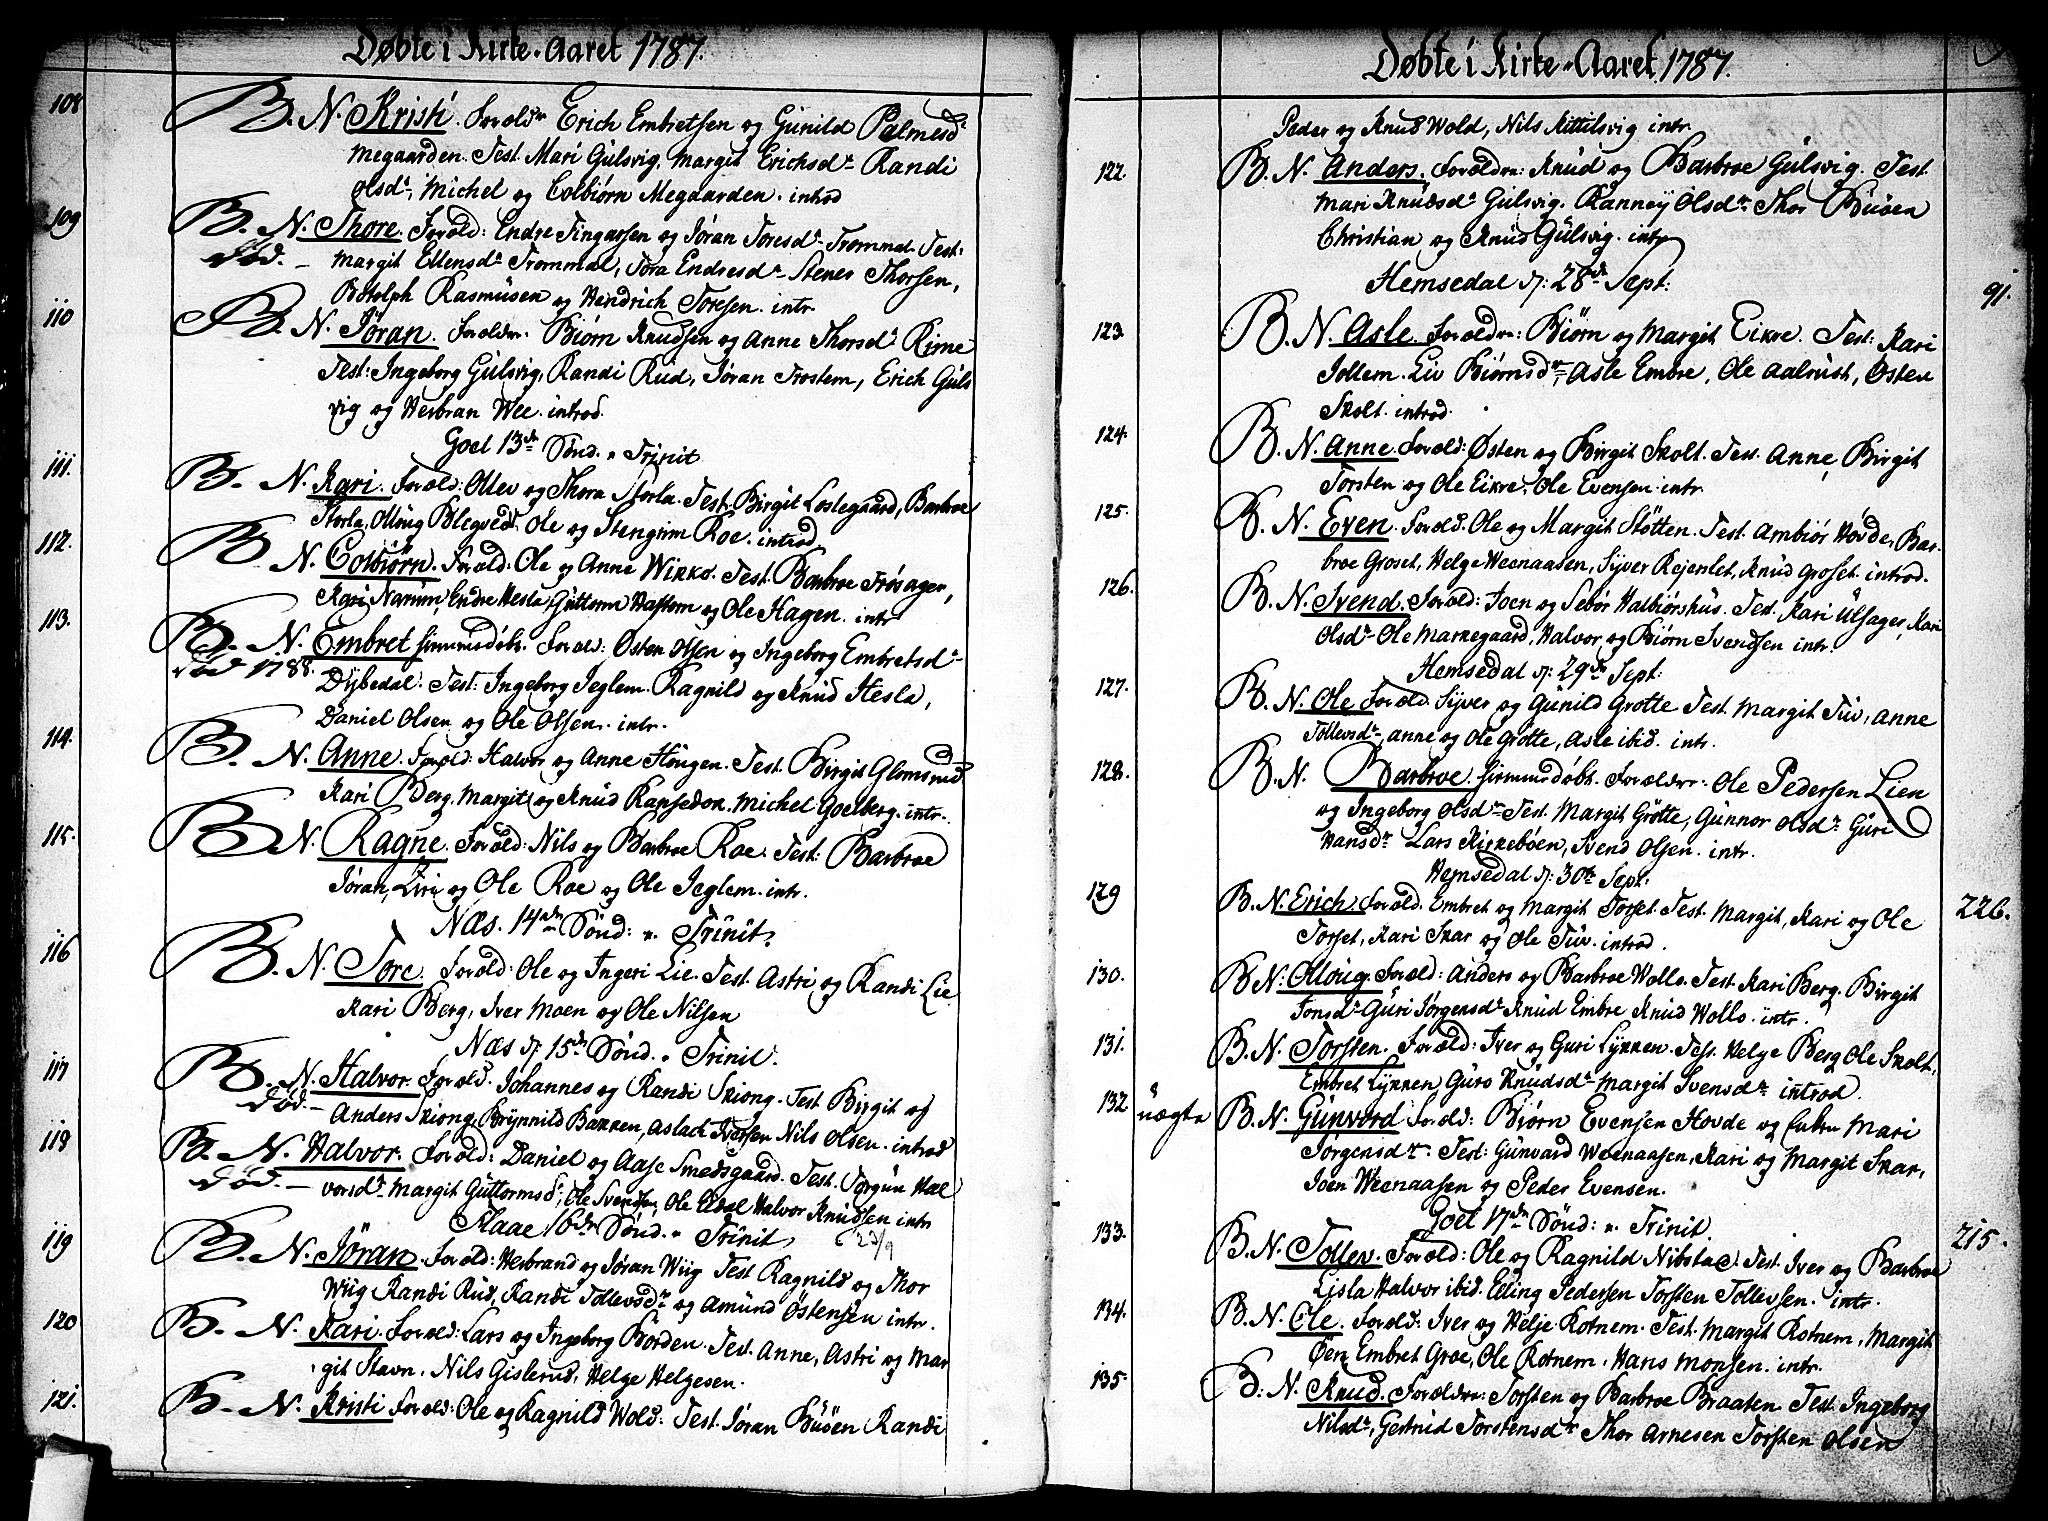 Døbte i Kirke-Aaret 1787.
108 B. N. Kristi. Foræld: Erich Embretsen og Gunild Palmesdr
Megaarden. Test. Mari Gulsvig, Margit Erichsdr Randi
Olsdr, Michel og Colbiørn Megaarden. introd
109 B. N. Thore. Foræld: Endre Fingarsen og Jøran Toresdr Trommal Test:
død. – Margit Ellensdr Trommal, Tora Endresdr, Stener Thorsen,
Botolph Rasmusen og Hendrich Toresen. intr.
110 B. N. Jøran. Forældre: Biørn Knudsen og Anne Thorsdr Rime
Test: Ingeborg Gulsvig, Randi Rud, Jøran Trostem, Erich Guls
vig og Herbran Wee. introd.
Goel 13de Sønd. " Trinit
111. B. N. Kari. Foræld: Ollev og Thora Storla. Test. Birgit Lostegaard, Barbroe
Storla, Olloug Blegved, Ole og Stengrim Roe. introd
112. B N. Colbiørn. Foræld. Ole og Anne Wirko. Test. Barbroe Trøsager,
Kari Narum, Endre Hesla, Guttorm Haftom og Ole Hagen. intr
113. B. N. Embret hiemmedøbt. Foræld: Østen Olsen og Ingeborg Embretsdr
død 1788. Dybedal. Test: Ingeborg Jeglem. Ragnild og Knud Hesla,
Daniel Olsen og Ole Olsen. intr.
114. B. N. Anne. Foræld: Halvor og Anne Hougen. Test. Birgit Glomsrud
Kari Berg, Margit og Knud Ransedok, Michel Goelberg. intr.
115. B N. Ragne. Foræld: Nils og Barbroe Roe. Test: Barbroe
Jøran, Liv og Ole Roe og Ole Jeglem. intr.
Næs. 14de Sønd: ". Trinit.
116 B. N. Tore. Foræld: Ole og Ingeri Lie. Test. Astri og Randi Lie
Kari Berg, Iver Moen og Ole Nilsen
Næs d: 15de Sønd. " Trinit.
117 B. N. Halvor. Foræld. Johannes og Randi Skiong. Test Birgit og
død. – Anders Skiong, Brynnild Bakken, Aslack Iversen Nils Olsen. introd
118 B. N. Halvor. Foræld: Daniel og Aase Smedsgaard. Test. Jorgun Hal
død. – vorsdr Margit Guttormsdr, Ole Svendsen, Ole Halvor Knudsen intr
Flaae 16de Sønd. " Trinit. 23/9
119 B. N. Jøran. Foræld: Herbrand og Jøran Wiig Test Ragnild og Thor
Wiig Randi Rud, Randi Tollevsdr og Amund Østensen intr.
120 B. N. Kari. Foræld: Lars og Ingeborg Borden. Test. Anne, Astri og Mar
git Stavn. Nils Gislerud, Helge Helgesen.
121. B. N. Kristi Foræld: Ole og Ragnild Wold. Test. Jøran Buøen Randi
Døbte i Kirke-Aaret 1787.
Peder og Knud Wold, Nils Kittilsvig intr.
122. B. N. Anders. Forældre: Knud og Barbroe Gulsvig. Test
Mari Knudsdr Gulsvig. Rannøy Olsdr Thor Buøen
Christian og Knud Gulsvig. intr
Hemsedal d: 28de Sept: 91.
123. B. N. Asle. Forældre: Biørn og Margit Eikre. Test: Kari
Jollem. Liv Biørnsdr, Asle Embre, Ole Aalrust, Østen
Skolt. introd.
124. B. N. Anne. Foræld: Østen og Birgit Skolt. Test. Anne, Birgit
Torsten og Ole Eikre. Ole Evensen. intr
125. B. N. Even. Foræld. Ole og Margit Støtten. Test. Ambiør Hovde, Bar-
broe Groset, Helge Weenaasen, Syver Rejenlet, Knud Groset. introd.
126. B. N. Svend. Foræld: Joen og Sebør Halbiørshus. Test. Kari Ulsager, Kari
Olsdr Ole Markegaard, Halvor og Biørn Svendsen intr.
Hemsedal d: 29de Sept:
127. B. N. Ole. Foræld. Syver og Gunild Grotte Test. Margit Tuv, Anne
Tollevsdr, Anne og Ole Grotte, Asle ibid. intr.
128. B. N. Barbroe. hiemmedøbt. Forældre: Ole Pedersen Lien
og Ingeborg Olsdr. Test. Margit Grotte, Gunnor Olsdr Guri
Hansdr Lars Kirkebøen, Svend Olsen. intr.
Hemsedal d: 30te Sept.
129 B. N. Erich. Foræld. Embret og Margit Torset. Test. Margit, Kari og Ole 226.
Torset, Kari Skar og Ole Tuv. introd.
130. B N. Olloug. Foræld: Anders og Barbroe Wollo. Test. Kari Berg, Birgit
Jonsdr Guri Jørgensdr Knud Embre Knud Wollo. intr.
131. B. N. Torsten. Foræld: Iver og Guri Lykken. Test. Helge Berg Ole Skolt,
Embret Lykken Guro Knudsdr Margit Svensdr introd.
132 uægte B. N. Gunvord Foræld: Biørn Evensen Hovde og Enken Mari
Jørgensdr. Test: Gunvard Weenaasen, Kari og Margit Skar,
Joen Weenaasen og Peder Evensen.
Goel 17de Sønd: ". Trinit.
133. B. N. Tollev. Foræld: Ole og Ragnild Nibstad. Test. Iver og Barbroe 215.
Lisla Halvor ibid. Elling Pedersen Torsten Tollevsen. intr.
134. B. N. Ole. Foræld: Iver og Helje Rotnem. Test. Margit Rotnem, Margit
Øen, Embret Groe, Ole Rotnem. Hans Monsen. intr.
135. B. N. Knud. Forældre: Torsten og Barbroe Braaten. Test. Ingeborg
Nilsdr, Gertrud Torstensdr Thor Arnesen Torsten Olsen